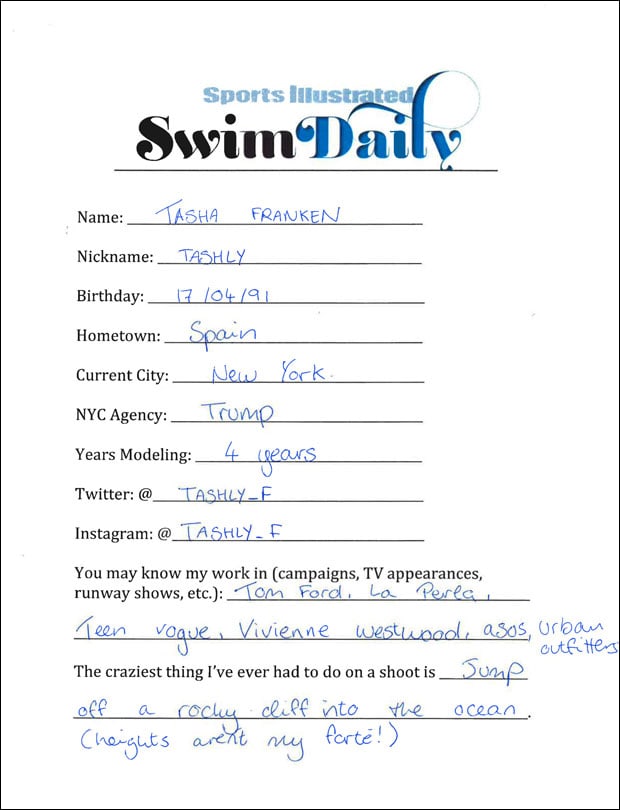 Sports Illustrated
Swim Daily
Name: TASHA FRANKEN
Nickname: TASHLY
Birthday: 17/04/91
Hometown: Spain
Current City: New York.
NYC Agency: Trump
Years Modeling: 4 years
Twitter: @ TASHLY_F
Instagram: @ TASHLY_F
You may know my work in (campaigns, TV appearances,
runway shows, etc.): Tom Ford, La Perla,
Teen vogue, Vivienne westwood, asos, urban
outfitters
The craziest thing I've ever had to do on a shoot is Jump
off a rocky cliff into the ocean.
(heights aren't my forté!)